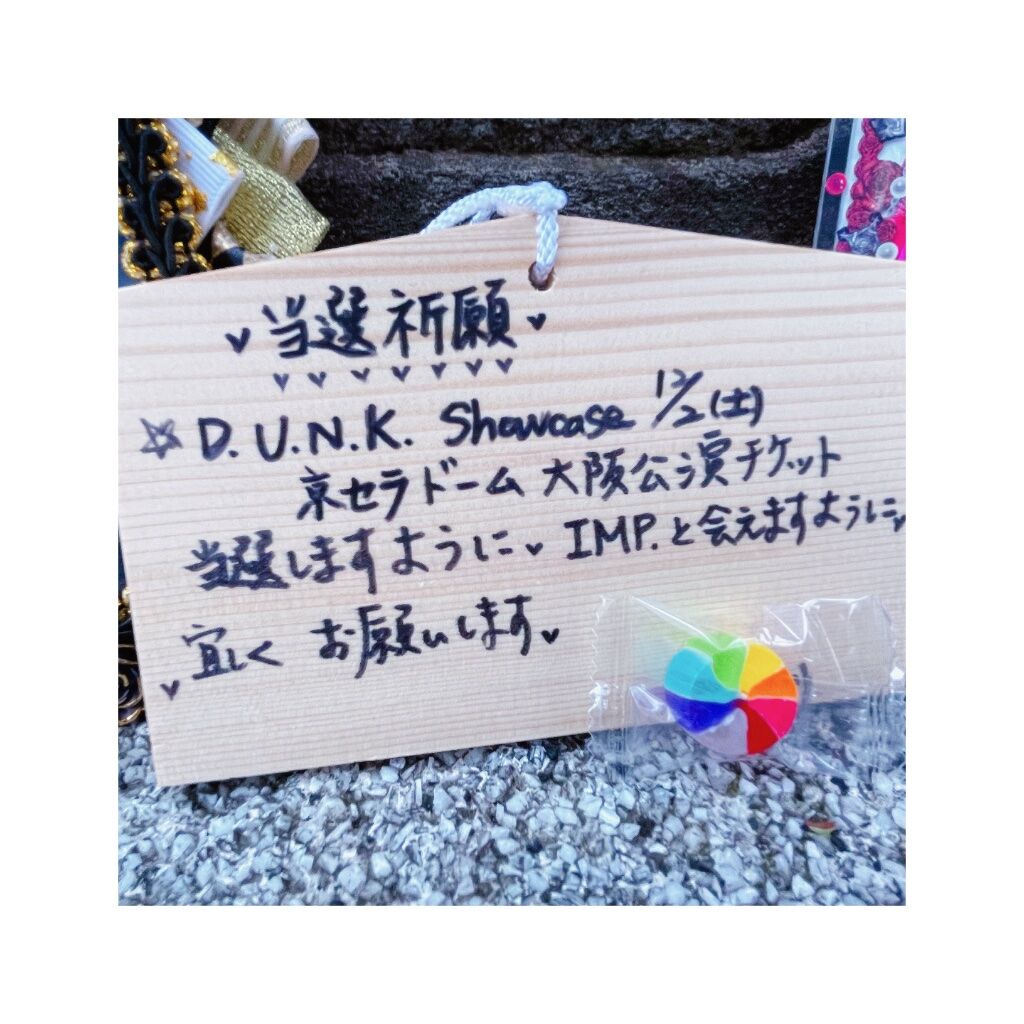 ♥当選祈願♥
☆D.U.N.K. Showcase 12/2(土)
京セラドーム大阪公演チケット
当選しますように♥IMP.と会えますように♥
宜しくお願いします♥